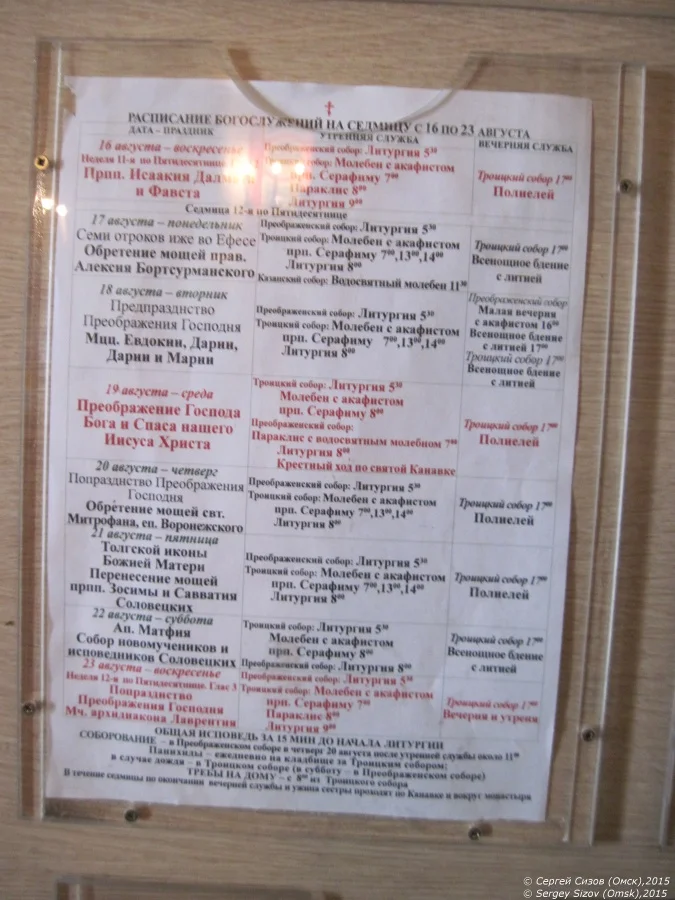 РАСПИСАНИЕ БОГОСЛУЖЕНИЙ НА СЕДМИЦУ С 16 ПО 23 АВГУСТА
ДАТА – ПРАЗДНИК
УТРЕННЯЯ СЛУЖБА
ВЕЧЕРНЯЯ СЛУЖБА
16 августа – воскресенье
Неделя 11-я по Пятидесятнице
Прпп. Исаакия
и Фавста
Преображенский собор: Литургия 5³⁰
Троицкий собор: Молебен с акафистом
прп. Серафиму 7⁰⁰
Параклис 8⁰⁰
Литургия 9⁰⁰
Троицкий собор 17⁰⁰
Полиелей
Седмица 12-я по Пятидесятнице
17 августа – понедельник
Семи отроков иже во Ефесе
Обретение мощей прав.
Алексия Бортсурманского
Преображенский собор: Литургия 5³⁰
Троицкий собор: Молебен с акафистом
прп. Серафиму 7⁰⁰,13⁰⁰,14⁰⁰
Литургия 8⁰⁰
Казанский собор: Водосвятный молебен 11³⁰
Троицкий собор 17⁰⁰
Всенощное бдение
с литией
18 августа – вторник
Предпразднство
Преображения Господня
Мцц. Евдокии, Дарии,
Дарии и Марии
Преображенский собор: Литургия 5³⁰
Троицкий собор: Молебен с акафистом
прп. Серафиму 7⁰⁰,13⁰⁰,14⁰⁰
Литургия 8⁰⁰
Преображенский собор
Малая вечерня
с акафистом 16⁰⁰
Всенощное бдение
с литией 17⁰⁰
Троицкий собор 17⁰⁰
Всенощное бдение
с литией
19 августа – среда
Преображение Господа
Бога и Спаса нашего
Иисуса Христа
Троицкий собор: Литургия 5³⁰
Молебен с акафистом
прп. Серафиму 8⁰⁰
Преображенский собор:
Параклис с водосвятным молебном 7⁰⁰
Литургия 8⁰⁰
Крестный ход по святой Канавке
Троицкий собор 17⁰⁰
Полиелей
20 августа – четверг
Попразднство Преображения
Господня
Обретение мощей свт.
Митрофана, еп. Воронежского
Преображенский собор: Литургия 5³⁰
Троицкий собор: Молебен с акафистом
прп. Серафиму 7⁰⁰,13⁰⁰,14⁰⁰
Литургия 8⁰⁰
Троицкий собор 17⁰⁰
Полиелей
21 августа – пятница
Толгской иконы
Божией Матери
Перенесение мощей
прпп. Зосимы и Савватия
Соловецких
Преображенский собор: Литургия 5³⁰
Троицкий собор: Молебен с акафистом
прп. Серафиму 7⁰⁰,13⁰⁰,14⁰⁰
Литургия 8⁰⁰
Троицкий собор 17⁰⁰
Полиелей
22 августа – суббота
Ап. Матфия
Собор новомучеников и
исповедников Соловецких
Троицкий собор: Литургия 5³⁰
Молебен с акафистом
прп. Серафиму 8⁰⁰
Преображенский собор: Литургия 8⁰⁰
Троицкий собор 17⁰⁰
Всенощное бдение
с литией
23 августа – воскресенье
Неделя 12-я по Пятидесятнице. Глас 3
Попразднство
Преображения Господня
Мч. архидиакона Лаврентия
Преображенский собор: Литургия 5³⁰
Троицкий собор: Молебен с акафистом
прп. Серафиму 7⁰⁰
Параклис 8⁰⁰
Литургия 9⁰⁰
Троицкий собор 17⁰⁰
Вечерня и утреня
ОБЩАЯ ИСПОВЕДЬ ЗА 15 МИН ДО НАЧАЛА ЛИТУРГИИ
СОБОРОВАНИЕ – в Преображенском соборе в четверг 20 августа после утренней службы около 11⁰⁰
Панихиды – ежедневно на кладбище за Троицким собором;
в случае дождя – в Троицком соборе (в субботу – в Преображенском соборе)
ТРЕБЫ НА ДОМУ – с 8⁰⁰ из Троицкого собора
В течение седмицы по окончании вечерней службы и ужина сестры проходят по Канавке и вокруг монастыря
© Сергей Сизов (Омск),2015
© Sergey Sizov (Omsk),2015